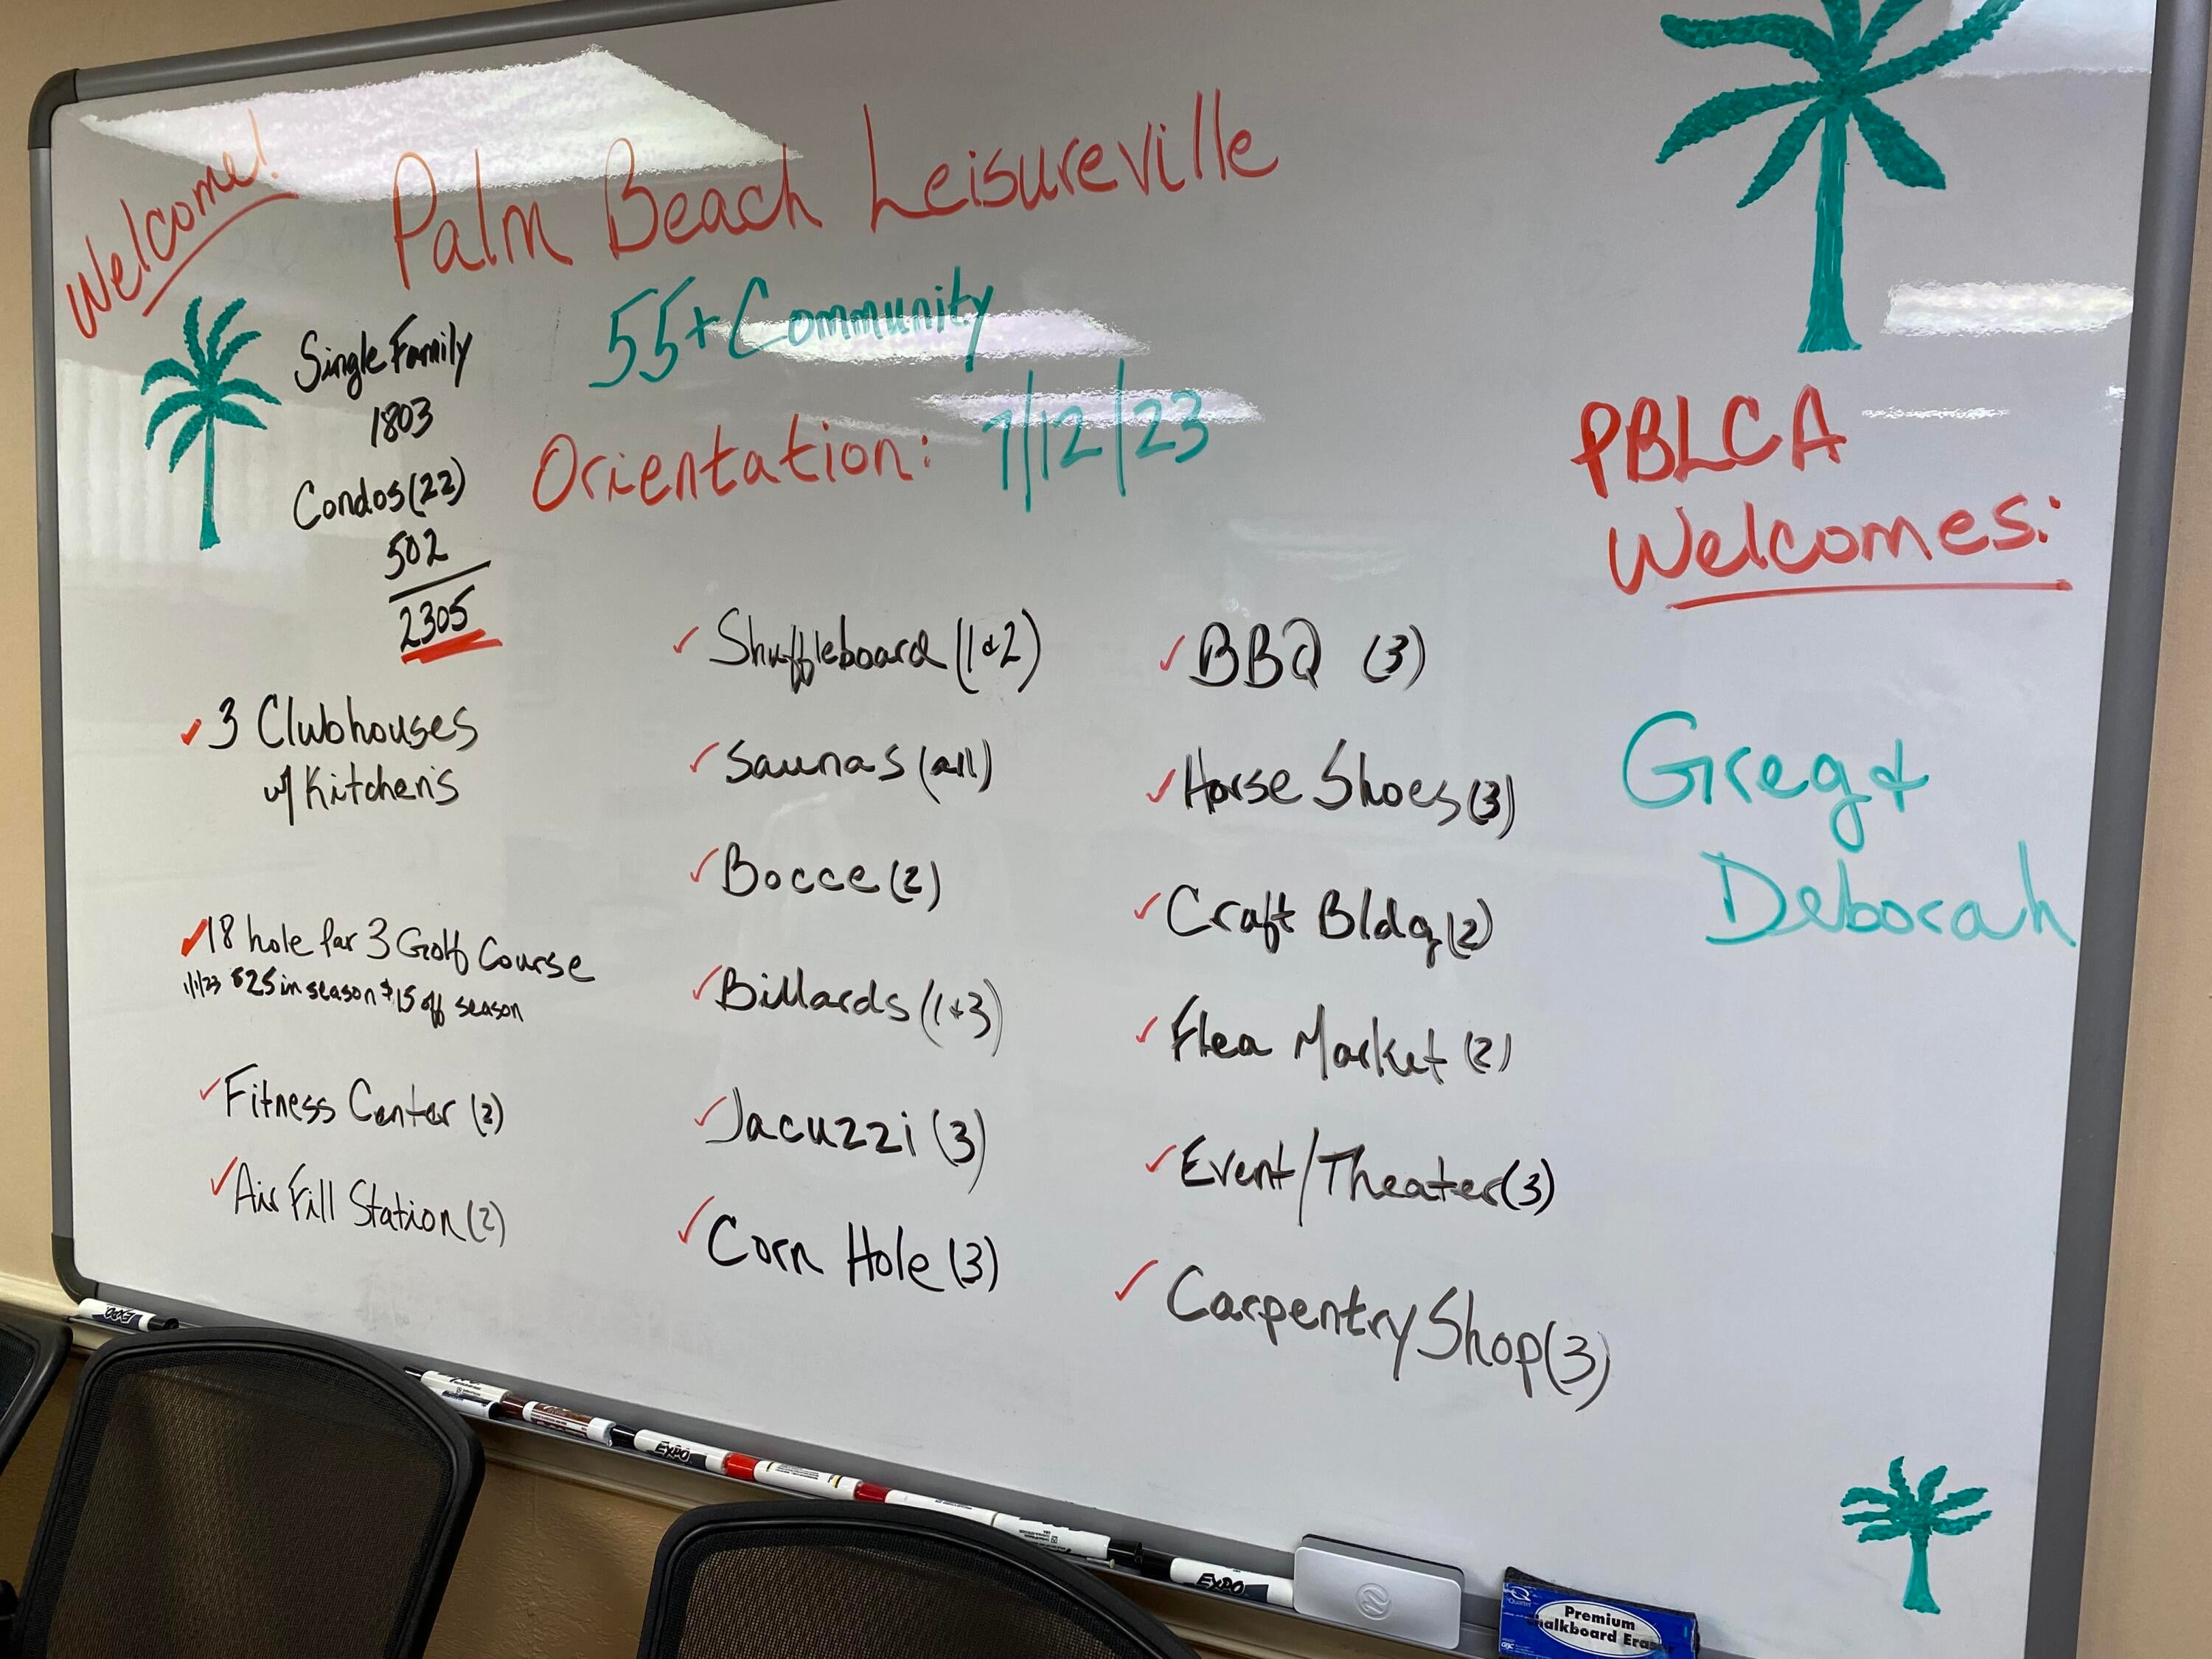 Welcome!
Palm Beach Leisureville
55+ Community
Orientation: 7/12/23
Single Family
1803
Condos (22)
502
2305
✓ 3 Clubhouses
w/ Kitchens
✓ 18 hole Par 3 Golf Course
1/1/23 $25 in season $15 off season
✓ Fitness Center (2)
✓ Air Fill Station (2)
✓ Shuffleboard (1 & 2)
✓ Saunas (all)
✓ Bocce (2)
✓ Billards (1 + 3)
✓ Jacuzzi (3)
✓ Corn Hole (3)
✓ BBQ (3)
✓ Horse Shoes (3)
✓ Craft Bldg (2)
✓ Flea Market (2)
✓ Event/Theater (3)
✓ Carpentry Shop (3)
PBLCA
Welcomes:
Greg &
Deborah
EXPO
EXPO
Quartet
Premium
Chalkboard Eraser